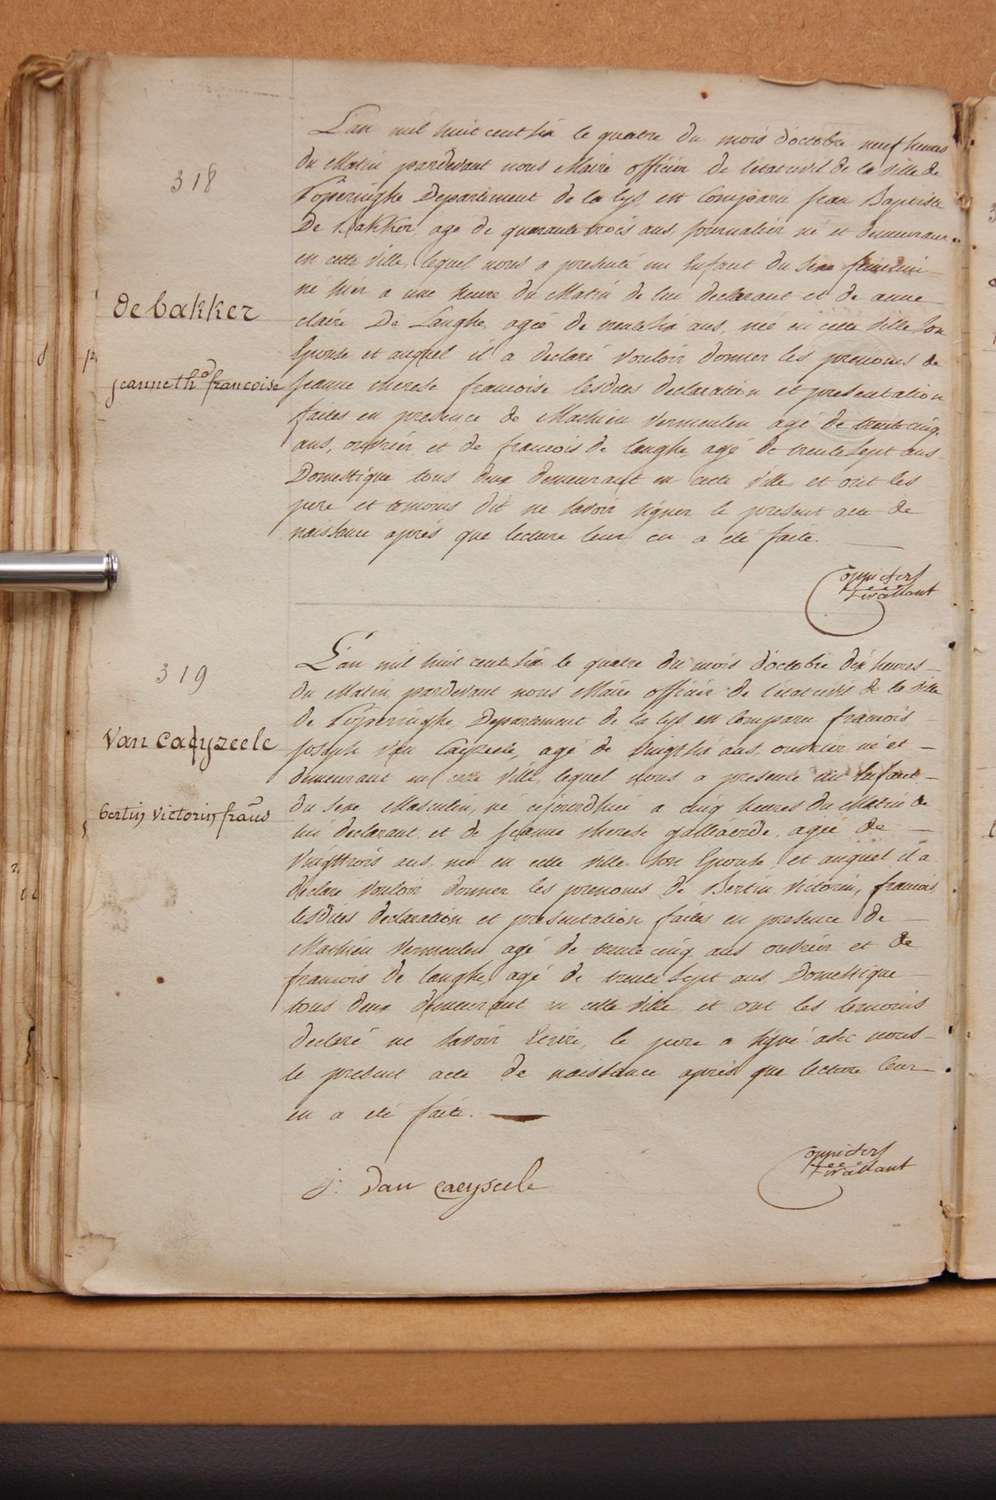 318
de bakker
jeanne th.e francoise
L'an mil huit cent six le quatre du mois d'octobre neuf heures
du Matin pardevant nous Maire officier de l'etat civil de la ville de
Poperinghe Departement de la Lys est Comparu jean Baptiste
De Bakker, age de quarante trois ans journalier né et demeurant
en cette ville, lequel nous a presenté un Enfant du sexe feminin
né hier a une heure du Matin de lui declarant et de anne
claire De Langhe, agée de trente six ans, née en cette ville son
Epouse et auquel il a declaré vouloir donner les prenoms de
jeanne therese francoise lesdites declaration et presentation
faites en presence de Mathieu Vermeulen agé de trente cinq
ans, ouvrier et de francois de langhe agé de trente sept ans
Domestique tous deux demeurant en cette ville et ont les
pere et temoins dit ne savoir signer le present acte de
naissance après que lecture leur en a été faite.
319
Van caeyzeele
bertin victorin frans
L'an mil huit cent six le quatre du mois d'octobre dix heures
du Matin, pardevant nous Maire officier de l'etat civil de la ville
de Poperinghe, Departement de la Lys est Comparu francois
joseph Van Caeyzeele, agé de vingt six ans ouvrier né et
demeurant en cette ville, lequel nous a presenté un Enfant
du sexe Masculin, né cejourdhui a cinq heures du Matin de
lui declarant et de jeanne therese agée de
vingt trois ans née en cette ville son Epouse et auquel il a
declaré vouloir donner les prenoms de Bertin Victorin, francois
lesdites declaration et presentation faites en presence de
Mathieu Vermeulen agé de trente cinq ans ouvrier et de
francois de langhe agé de trente sept ans Domestique
tous deux demeurant en cette ville et ont les temoins
declaré ne savoir Ecrire, le pere a signé avec nous
le present acte de naissance après que lecture leur
en a été faite.
j: Van Caeyseele